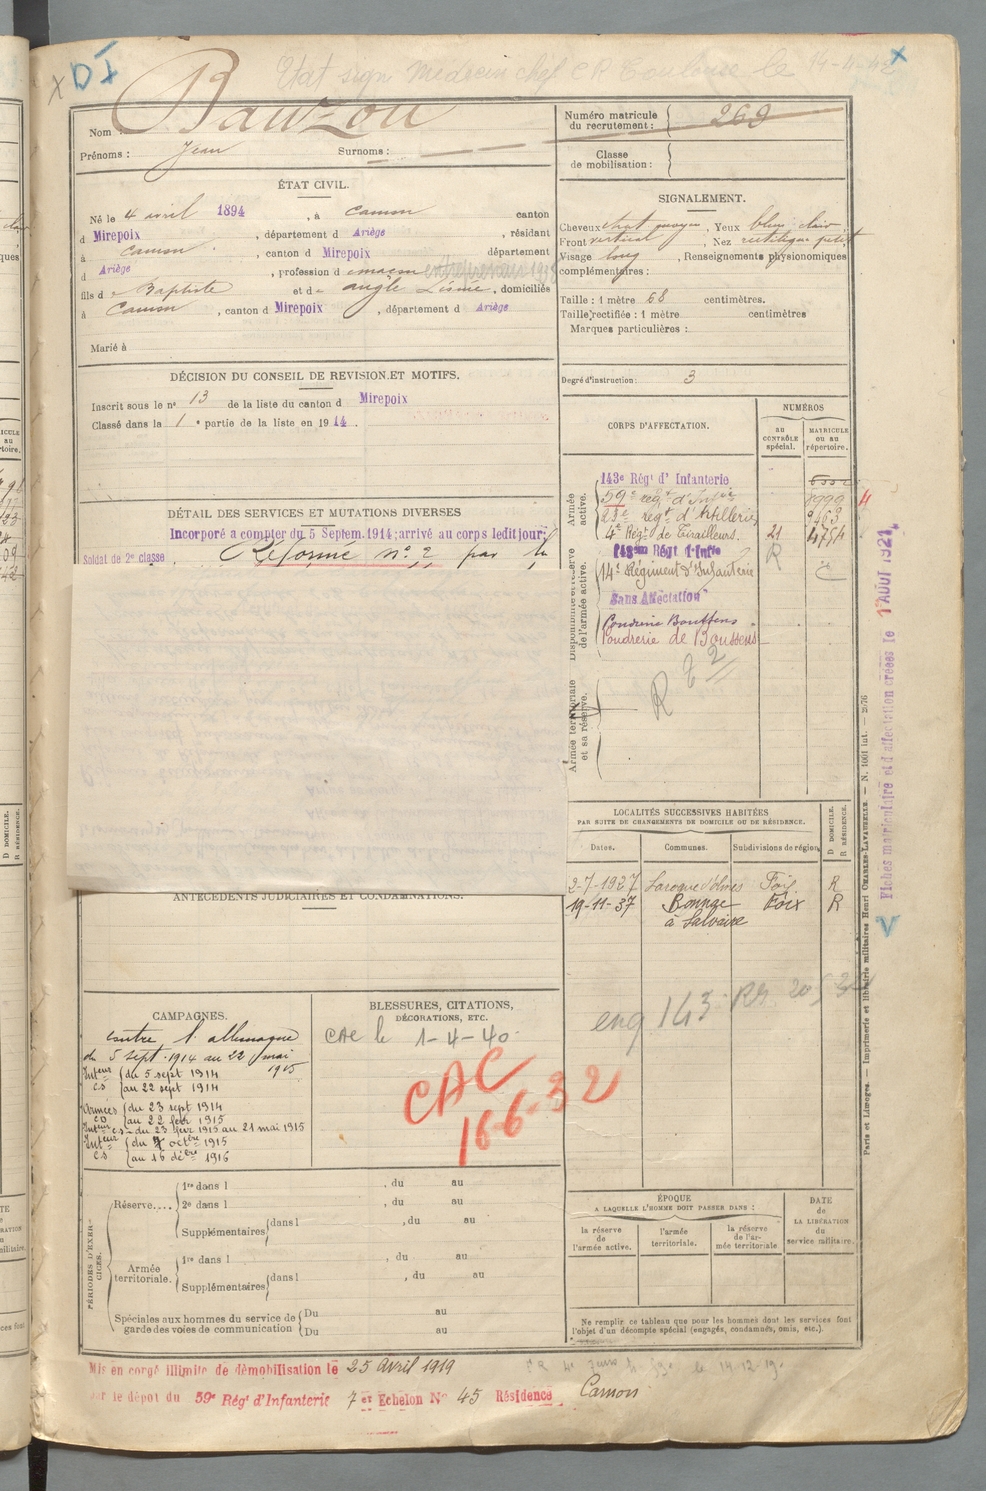 DI
Etat sign Médecin chef CR Toulouse le 14-11-42
Nom : Bauzou
Prénoms : Jean Surnoms :
Numéro matricule du recrutement : 269
Classe de mobilisation :
ÉTAT CIVIL.
Né le 4 avril 1894, à Camon canton
d Mirepoix, département d Ariège, résidant
à Camon, canton d Mirepoix département
d Ariège, profession d maçon entrepreneur
fils d Baptiste et d , domiciliés
à Camon, canton d Mirepoix, département d Ariège
Marié à
SIGNALEMENT.
Cheveux chat moyen, Yeux bleu clair,
Front vertical, Nez rectiligne petit
Visage long, Renseignements physionomiques
complémentaires :
Taille : 1 mètre 68 centimètres.
Taille rectifiée : 1 mètre centimètres
Marques particulières :
Degré d'instruction : 3
DÉCISION DU CONSEIL DE REVISION ET MOTIFS.
Inscrit sous le n° 13 de la liste du canton d Mirepoix
Classé dans la 1e partie de la liste en 1914.
DÉTAIL DES SERVICES ET MUTATIONS DIVERSES
Incorporé a compter du 5 Septem. 1914; arrivé au corps ledit jour;
Soldat de 2e classe. Réformé n° 2 par la
CORPS D'AFFECTATION.
NUMÉROS
AU CONTRÔLE spécial.
MATRICULE OU AU répertoire.
Armée active.
143e Régt d'Infanterie
59e régt d'Infie
23e régt d'Artillerie
4e Régt de Tirailleurs. 21 4754
Disponibilité et réserve de l'armée active.
143em Régt d'Infie R
14e Régiment d'Infanterie
Sans Affectation
Poudrerie Boussens
Poudrerie de Boussens
Armée territoriale et sa réserve.
Fiches matriculaire et d'affectation créées le 1 AOUT 1921
LOCALITÉS SUCCESSIVES HABITÉES
PAR SUITE DE CHANGEMENTS DE DOMICILE OU DE RÉSIDENCE.
D DOMICILE.
R RÉSIDENCE.
Dates. Communes. Subdivisions de région
2-7-1927 Laroque d'Olmes Foix R
19-11-37 Bonnac à Salvaire Foix R
eng 143 RR
ANTÉCÉDENTS JUDICIAIRES ET CONDAMNATIONS.
CAMPAGNES.
contre l'allemagne
du 5 sept. 1914 au 22 mai 1915
Inteur du 5 sept 1914
C.S au 22 sept 1914
Armées du 23 sept 1914
CD au 22 febr 1915
Inteur C.S du 23 févr 1915 au 21 mai 1915
Inteur du 7 octbre 1915
C.S au 16 décbre 1916
BLESSURES, CITATIONS,
DÉCORATIONS, ETC.
CAC le 1-4-40
CAC
16-6-32
PÉRIODES D'EXERCICES.
Réserve....
1re dans l , du au
2e dans l , du au
Supplémentaires dans l , du au
Armée territoriale.
1re dans l , du au
Supplémentaires dans l , du au
Spéciales aux hommes du service de garde des voies de communication
Du au
Du au
ÉPOQUE
A LAQUELLE L'HOMME DOIT PASSER DANS :
la réserve de l'armée active.
l'armée territoriale.
la réserve de l'armée territoriale
DATE de LA LIBÉRATION du service militaire.
Ne remplir ce tableau que pour les hommes dont les services font
l'objet d'un décompte spécial (engagés, condamnés, omis, etc.).
Paris et Limoges. — Imprimerie et librairie militaires Henri CHARLES-LAVAUZELLE. — N. 1001 int. — 29/76
Mis en congé illimité de démobilisation le 25 Avril 1919
par le dépôt du 59e Régt d'Infanterie 7 er Echelon N° 45 Résidence Camon